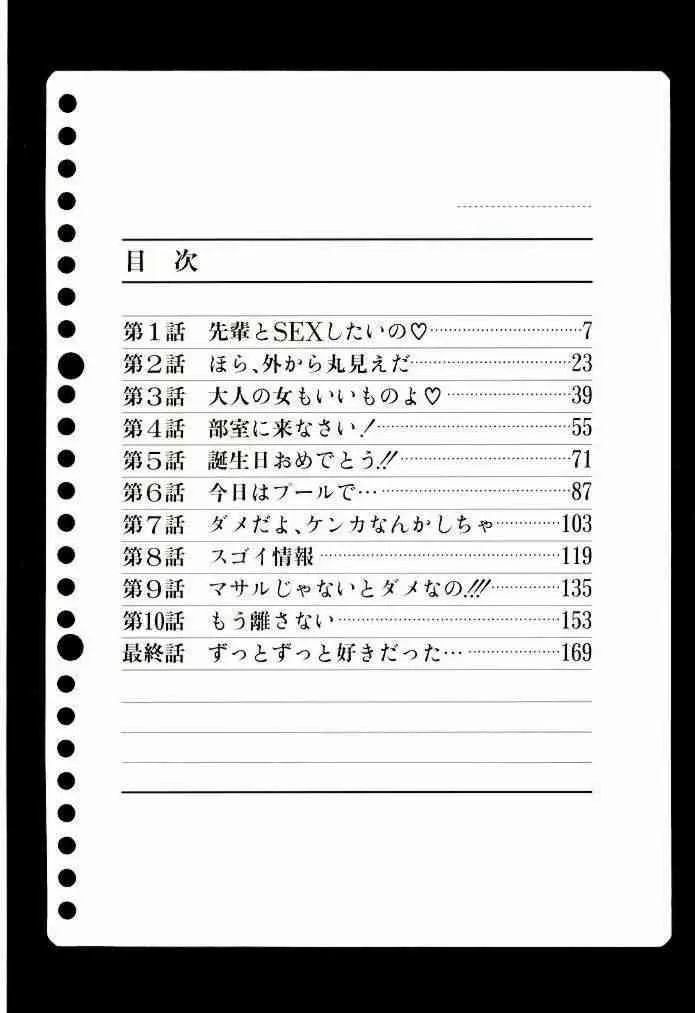 目 次
第1話 先輩とSEXしたいの♡……………………………7
第2話 ほら、外から丸見えだ……………………………23
第3話 大人の女もいいものよ♡……………………………39
第4話 部室に来なさい!……………………………55
第5話 誕生日おめでとう!!……………………………71
第6話 今日はプールで………………………………87
第7話 ダメだよ、ケンカなんかしちゃ……………103
第8話 スゴイ情報……………………………119
第9話 マサルじゃないとダメなの!!!……………135
第10話 もう離さない……………………………153
最終話 ずっとずっと好きだった…………………169